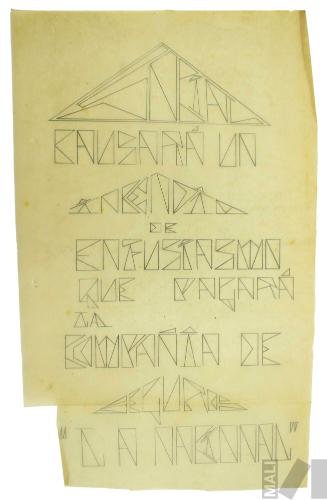 CAUSARÁ UN
INCENDIO
DE
ENTUSIASMO
QUE PAGARÁ
LA
COMPAÑÍA DE
SEGUROS
"LA NACIONAL"
MALI